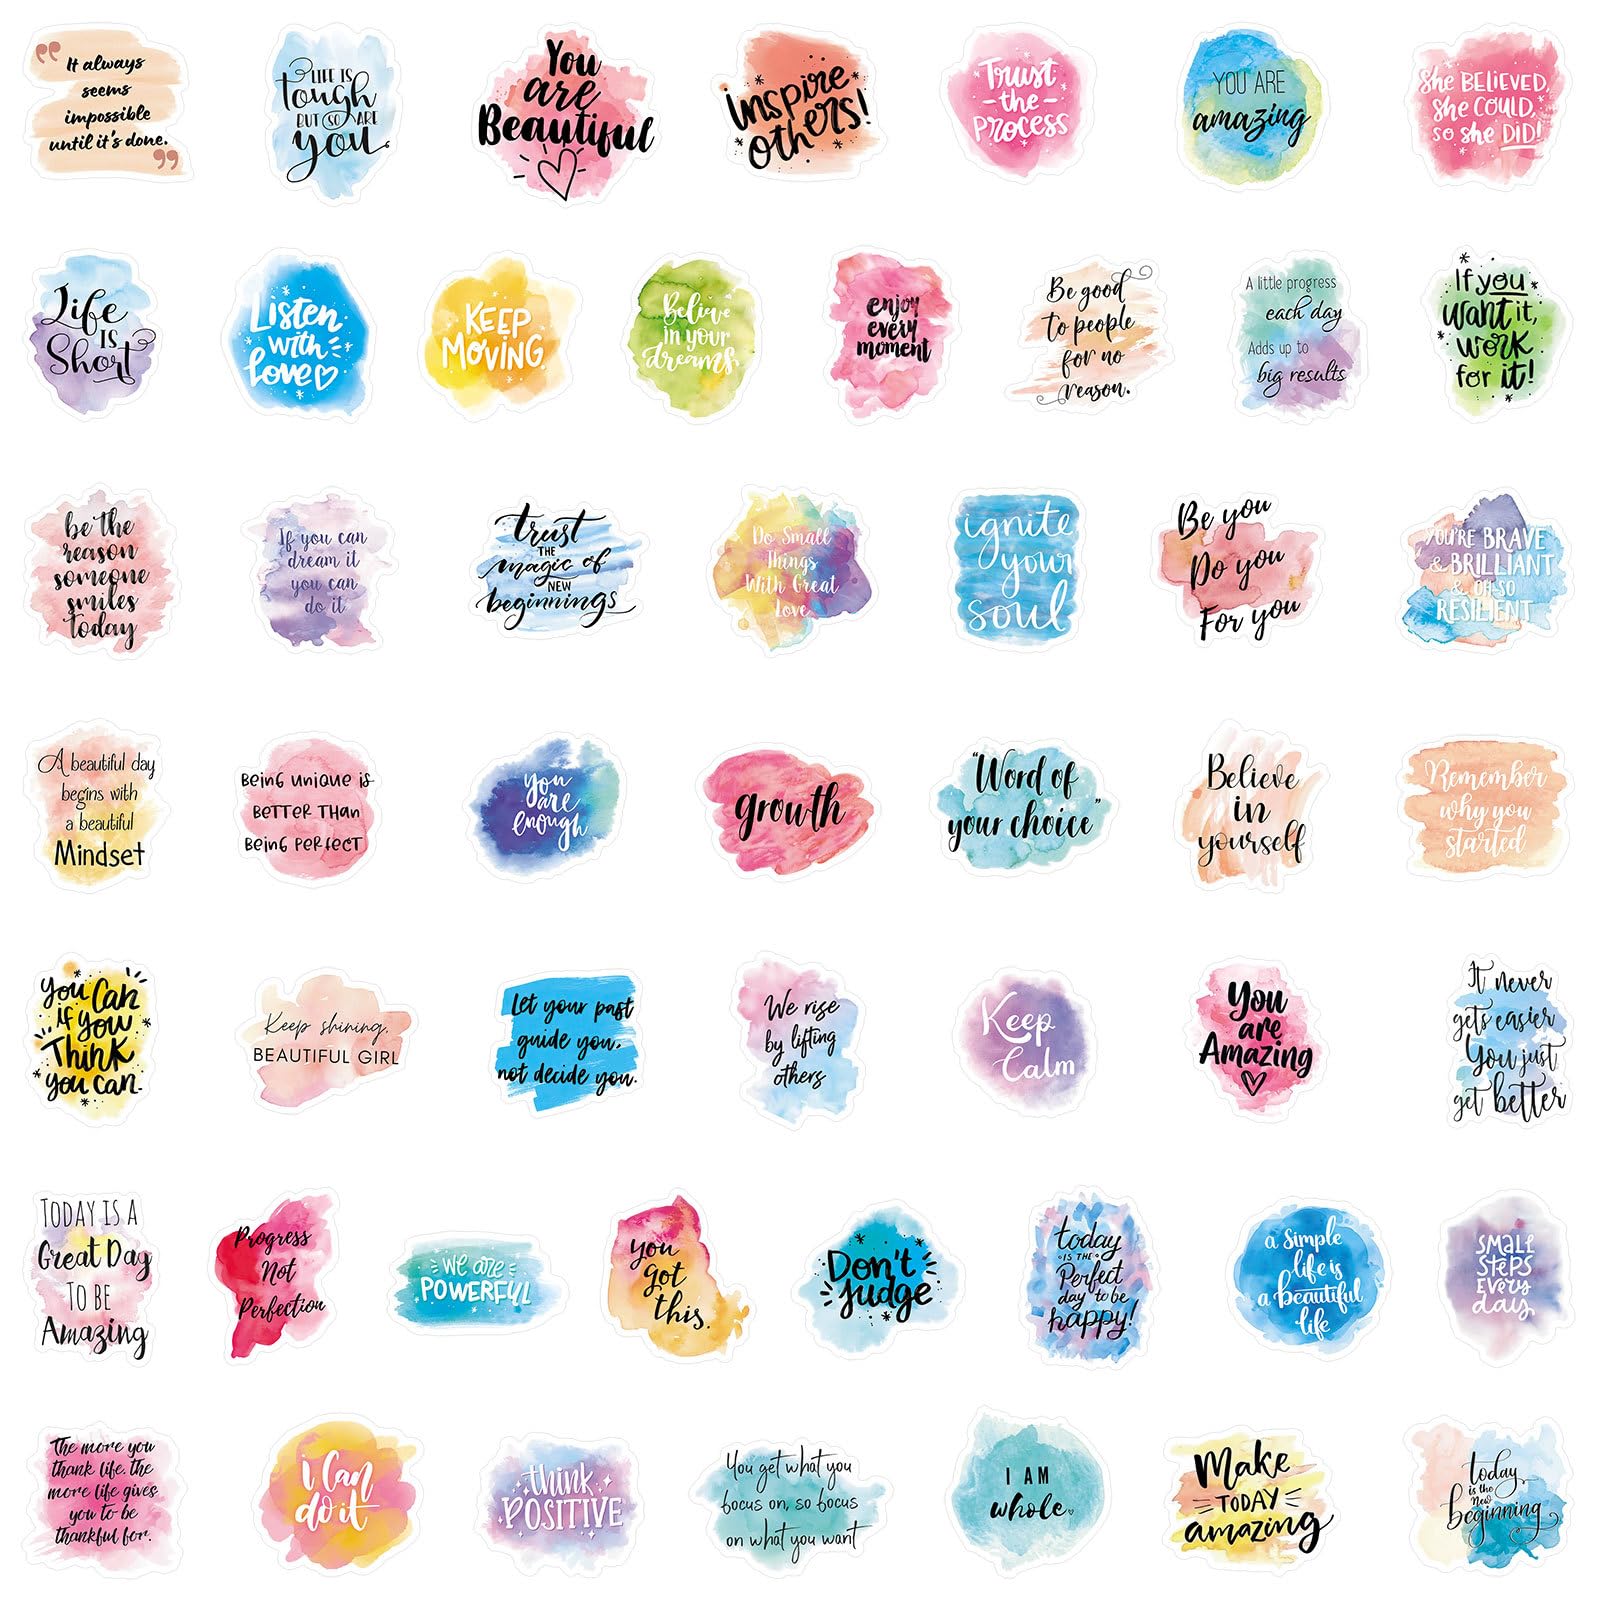 It always
seems
impossible
until it's done.
LIFE IS
tough
BUT SO ARE
you
You
are
Beautiful
inspire
others!
Trust
-the-
PROCESS
YOU ARE
amazing
She BELIEVED,
She COULD,
SO She DID!
Life
IS
Short
Listen
with
love
KEEP
MOVING
Believe
in your
dreams
enjoy
every
moment
Be good
to people
for no
reason.
A little progress
each day
Adds up to
big results
If you
want it,
work
for it!
be the
reason
someone
smiles
today
If you can
dream it
you can
do it
trust
THE
magic of
NEW
beginnings
Do Small
Things
With Great
Love
ignite
your
soul
Be you
Do you
For you
YOU'RE BRAVE
& BRILLIANT
& OH SO
RESILIENT
A beautiful day
begins with
a beautiful
Mindset
Being unique is
BETTER THAN
Being PERFECT
you
are
enough
growth
"Word of
your choice"
Believe
in
yourself
Remember
why you
started
you Can
if you
Think
you can.
Keep shining,
BEAUTIFUL GIRL
Let your past
guide you,
not decide you.
We rise
by lifting
others
Keep
Calm
You
are
Amazing
It never
gets easier
You just
get better
TODAY IS A
Great Day
TO BE
Amazing
Progress
Not
Perfection
we are
POWERFUL
you
got
this.
Don't
judge
today
IS THE
Perfect
day to be
happy!
a simple
life is
a beautiful
life
SMALL
STEPS
EVERY
day
The more you
thank life. the
more life gives
you to be
thankful for.
i Can
do it
think
POSITIVE
You get what you
focus on, so focus
on what you want
I AM
whole
Make
TODAY
amazing
today
is the
New
beginning